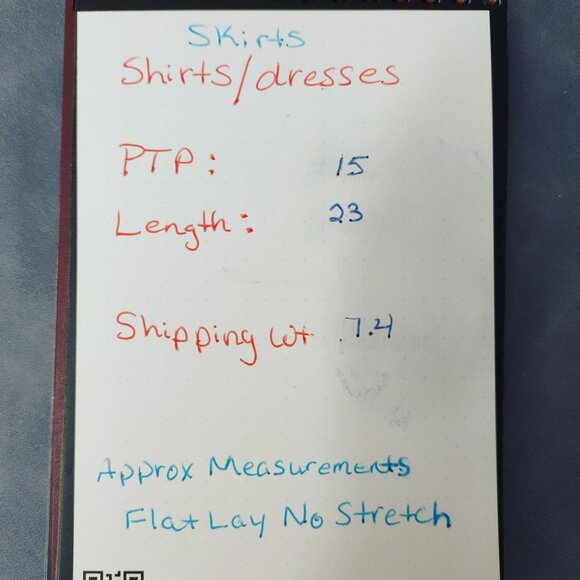 Skirts
Shirts/dresses
PTP: 15
Length: 23
Shipping wt 7.4
Approx Measurements
Flat Lay No Stretch